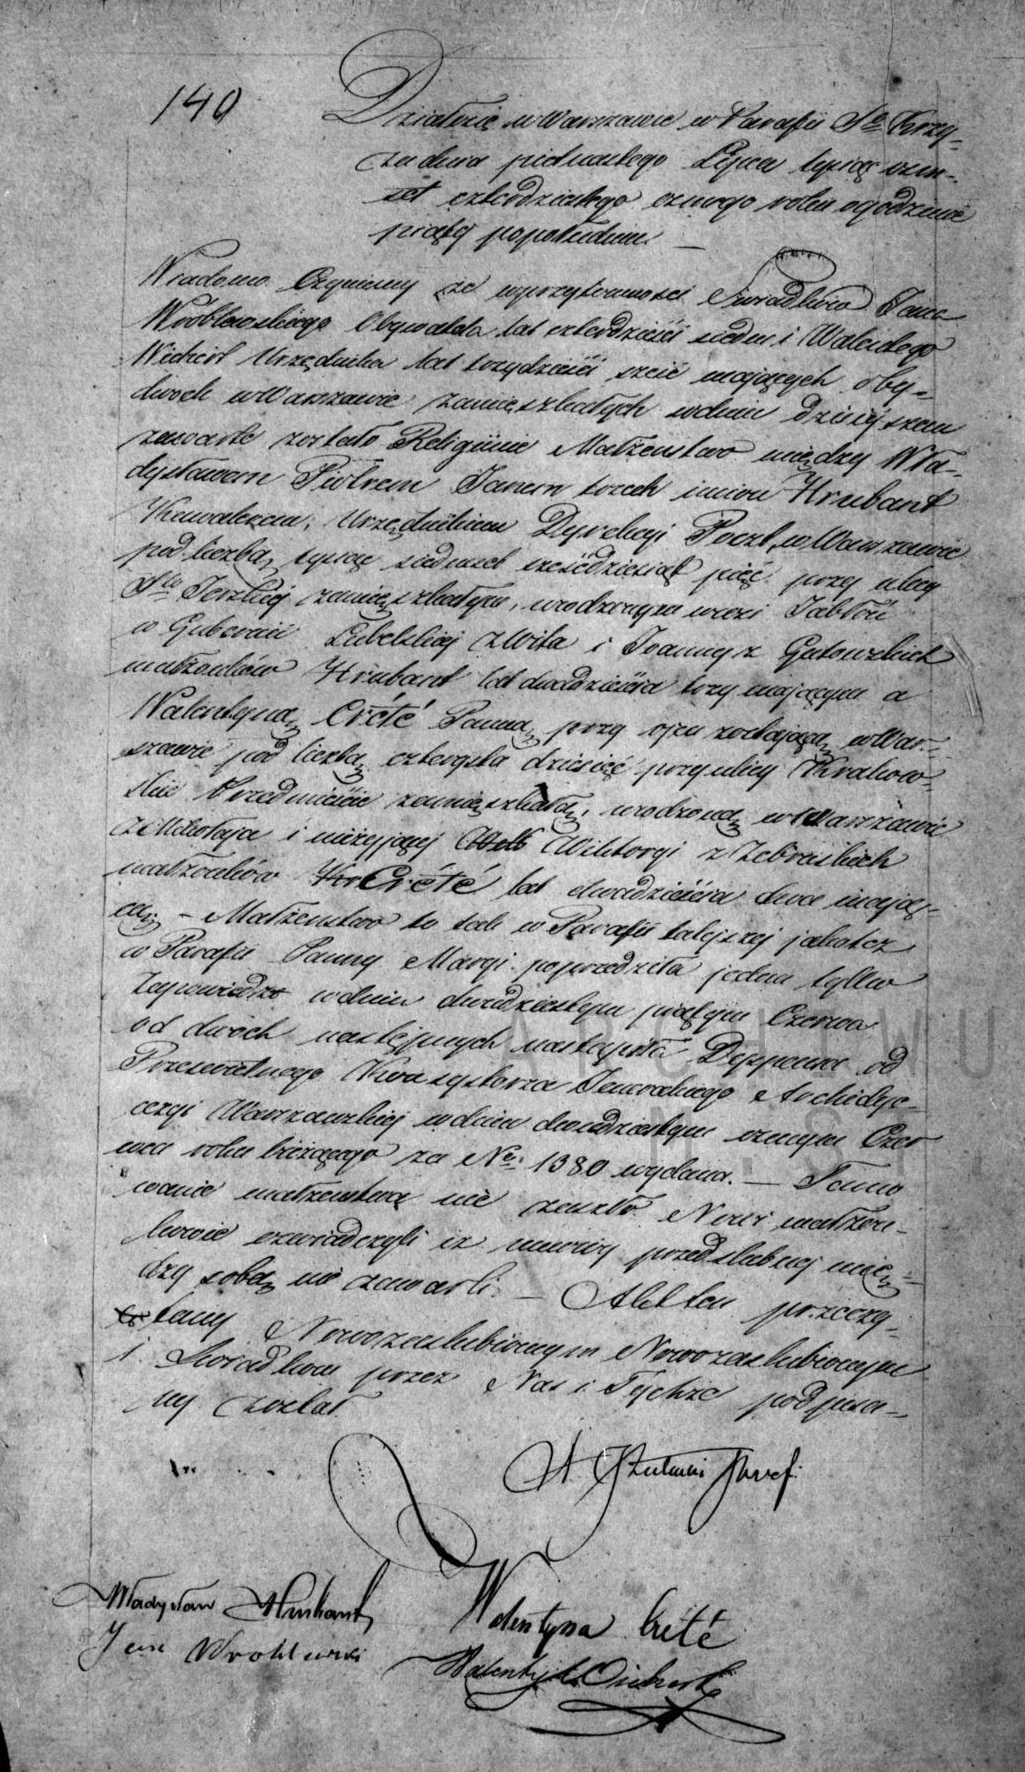 140
Działo się w Warszawie w Parafii Sgo Krzy-
ża dnia piątego Lipca tysiąc ośm-
set czterdziestego ósmego roku o godzinie
piątej popołudniu. —
Wiadomo Czyniemy że w przytomności Świadków Jana
Wróblewskiego Obywatela lat czterdzieści siedm i Walentego
Urzędnika lat trzydzieści sześć mających oby-
dwóch w Warszawie zamieszkałych w dniu dzisiejszem
zawarte zostało Religijnie Małżeństwo między Wła-
dysławem Piotrem Janem trzech imion Hrubant
Kawalerem, Urzędnikiem Dyrekcyi Poczt, w Warszawie
pod liczbą tysiąc siedmset sześćdziesiąt pięć przy ulicy
Sto Jerskiej zamieszkałym, urodzonym we wsi Jabłoń
w Gubernii Lubelskiej z Wita i Joanny z Gutowskich
małżonków Hrubant lat dwadzieścia trzy mającym a
Walentyną Crété Panną, przy ojcu zostającą w War-
szawie pod liczbą czterysta dziesięć przy ulicy Krakow-
skie Przedmieście zamieszkałą, urodzoną w Warszawie
z Mikołaja i nieżyjącej Wiktoryi z Zebrańskich
małżonków Crété lat dwadzieścia dwa mają-
cą. – Małżeństwo to tak w Parafii tutejszej jakotéż
w Parafii Panny Maryi poprzedziła jedna tylko
Zapowiedź w dniu dwudziestym piątym Czerwca
od dwóch następnych nastąpiła Dyspensa od
Prześwietnego Konsystorza Jeneralnego Archidye-
cezyi Warszawskiej w dniu dwudziestym ósmym Czer
wca roku bieżącego za No. 1380 wydana. — Tamo
wanie małżeństwa nie zaszło Nowi małżon-
kowie oświadczyli iż umowy przedślubnej mię-
dzy sobą nie zawarli. — Akt ten przeczy-
tany Nowozaślubionym Nowozaślubionym
i Świadkom przez Nas i Tychże podpisa-
ny został
Władysław Hrubant
Walentyna Crété
Jan Wroblewski
Walenty